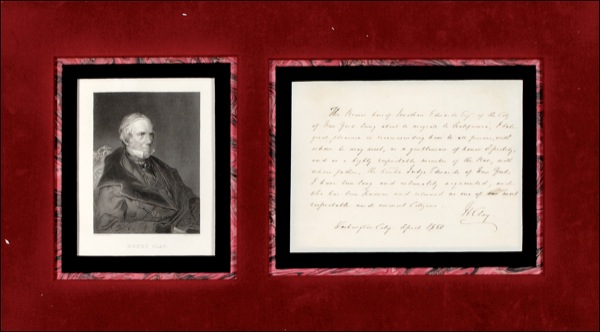 HENRY CLAY
The Bearer hereof Jonathan Edwards Esqr. of the City
of New York being about to migrate to California, I take
great pleasure in recommending him to all persons, with
whom he may meet, as a gentleman of honor & probity,
and as a highly respectable member of the Bar, with
whose father, the Judge Edwards of New York,
I have been long and intimately acquainted, and
who has been known and esteemed as one of our most
respectable and eminent Citizens.
H. Clay
Washington City April 1850